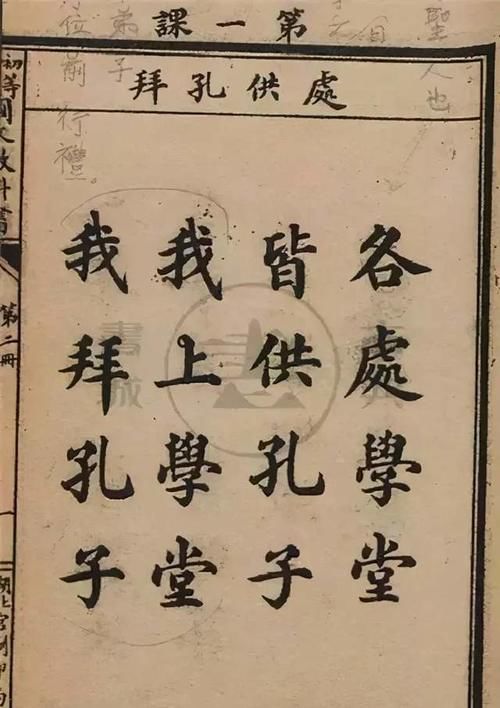 第一課
處供孔拜
各處學堂
皆供孔子
我上學堂
我拜孔子
聖人也
弟子
位前行禮。
初等國文教科書
第二冊
一
書城